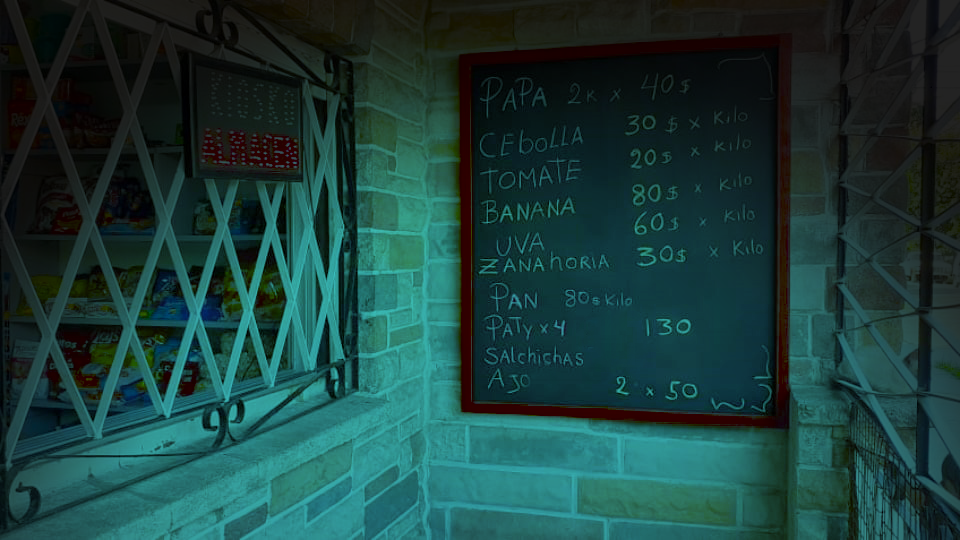 KIOSCO
ALMACEN
PAPA 2K x 40$
CEBOLLA 30$ x Kilo
TOMATE 20$ x Kilo
BANANA 80$ x Kilo
UVA 60$ x Kilo
ZANAHORIA 30$ x Kilo
PAN 80$ Kilo
PATY x 4 130
SALCHICHAS
AJO 2 x 50